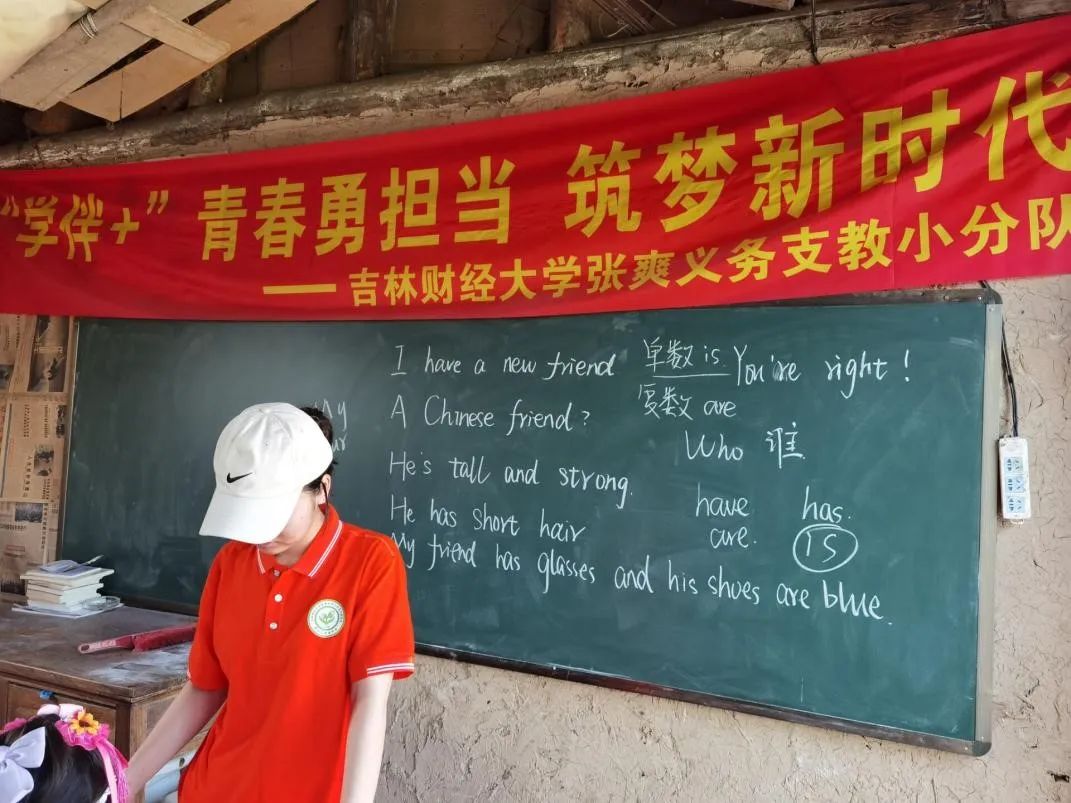 “学伴+” 青春勇担当 筑梦新时代
——吉林财经大学张爽义务支教小分队
I have a new friend
A Chinese friend?
He's tall and strong.
He has short hair
My friend has glasses and his shoes are blue.
单数 is
复数 are
You're right!
Who 谁
have has.
are. is
My